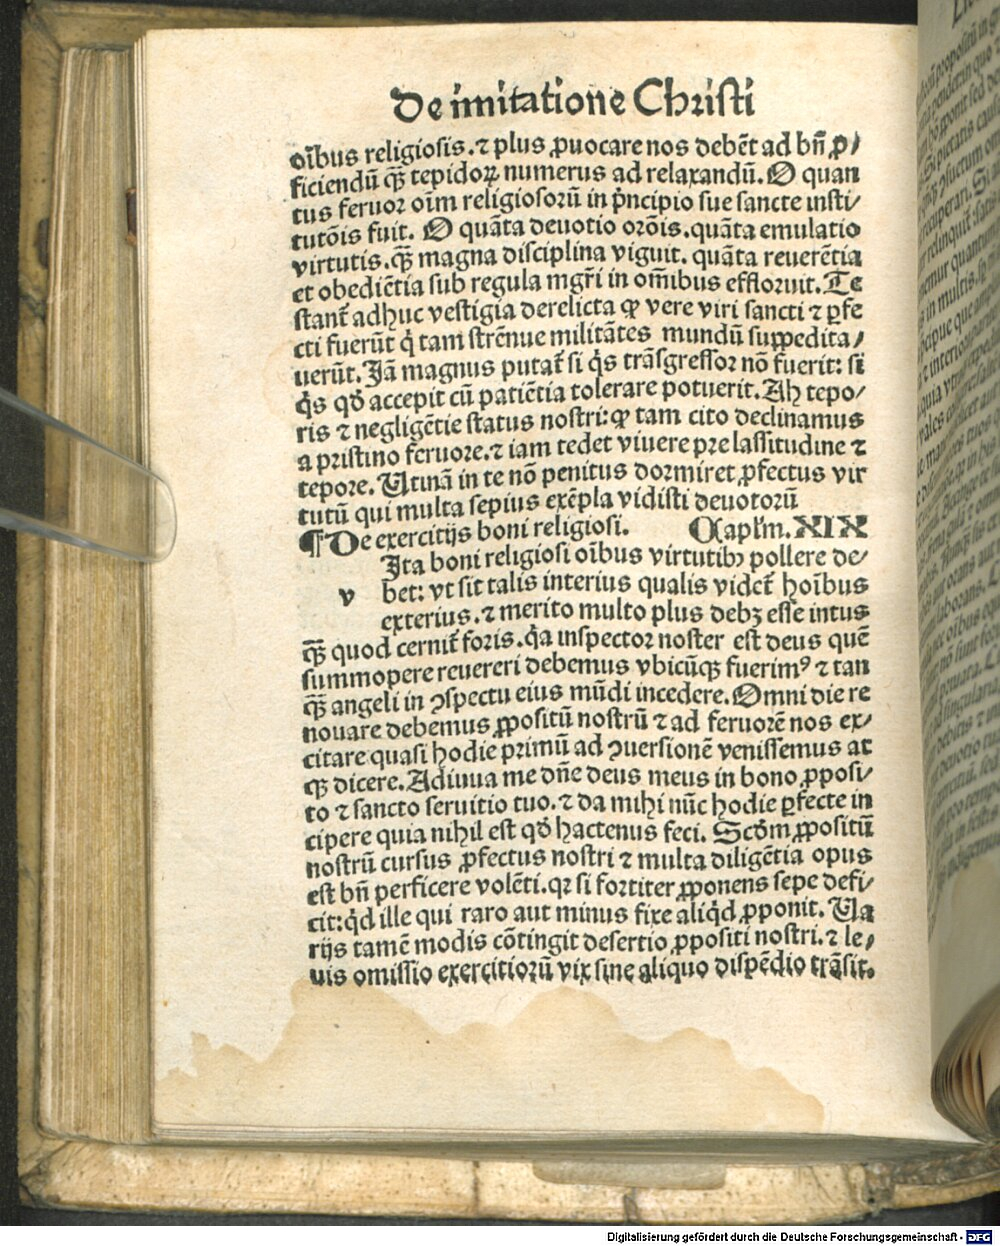 De imitatione Christi
oībus religiosis.⁊ plus ꝓuocare nos debēt ad bn̄ ꝓ/
ficiendū qꝫ̄ tepidoꝝ numerus ad relaxandū. O quan
tus feruor oīm religiosorū in pͥncipio sue sancte insti/
tutōis fuit. O quāta deuotio orōis.quāta emulatio
virtutis.qꝫ̄ magna disciplina viguit. quāta reuerētia
et obediētia sub regula mgr̄i in om̄ibus effloruit. Te
stant̄ adhuc vestigia derelicta ꝙ vere viri sancti ⁊ ꝑfe
cti fuerūt q̇ tam strēnue militātes mundū suppedita/
uerūt. Jā magnus putat̄ si q̇s trāsgressor nō fuerit: si
q̇s qđ accepit cū patiētia tolerare potuerit. Ah tepo/
ris ⁊ negligētie status nostri: ꝙ tam cito declinamus
a pristino feruore.⁊ iam tedet viuere pre lassitudine ⁊
tepore. Utinā in te nō penitus dormiret ꝓfectus vir
tutū qui multa sepius exēpla vidisti deuotorū
¶ De exercitijs boni religiosi. Capl'm. XIX
Ita boni religiosi oībus virtutibꝫ pollere de/
v bet: vt sit talis interius qualis videt̄ hoībus
exterius.⁊ merito multo plus debꝫ esse intus
qꝫ̄ quod cernit̄ foris.q̇a inspector noster est deus quē
summopere reuereri debemus vbicūqꝫ fuerimꝰ ⁊ tan
qꝫ̄ angeli in ꝯspectu eius mūdi incedere. Omni die re
nouare debemus ꝓpositū nostrū ⁊ ad feruorē nos ex/
citare quasi hodie primū ad ꝯuersionē venissemus at
qꝫ dicere. Adiuua me dn̄e deus meus in bono ꝓposi/
to ⁊ sancto seruitio tuo.⁊ da mihi nūc hodie ꝑfecte in
cipere quia nihil est qđ hactenus feci. Scđm ꝓpositū
nostrū cursus ꝓfectus nostri ⁊ multa diligētia opus
est bn̄ perficere volēti.qꝛ si fortiter ꝓponens sepe defi/
cit: q̇d ille qui raro aut minus fixe aliq̇d ꝓponit. Ua
rijs tamē modis cōtingit desertio ꝓpositi nostri.⁊ le/
uis omissio exercitiorū vix sine aliquo dispēdio trāsit.
Digitalisierung gefördert durch die Deutsche Forschungsgemeinschaft - DFG